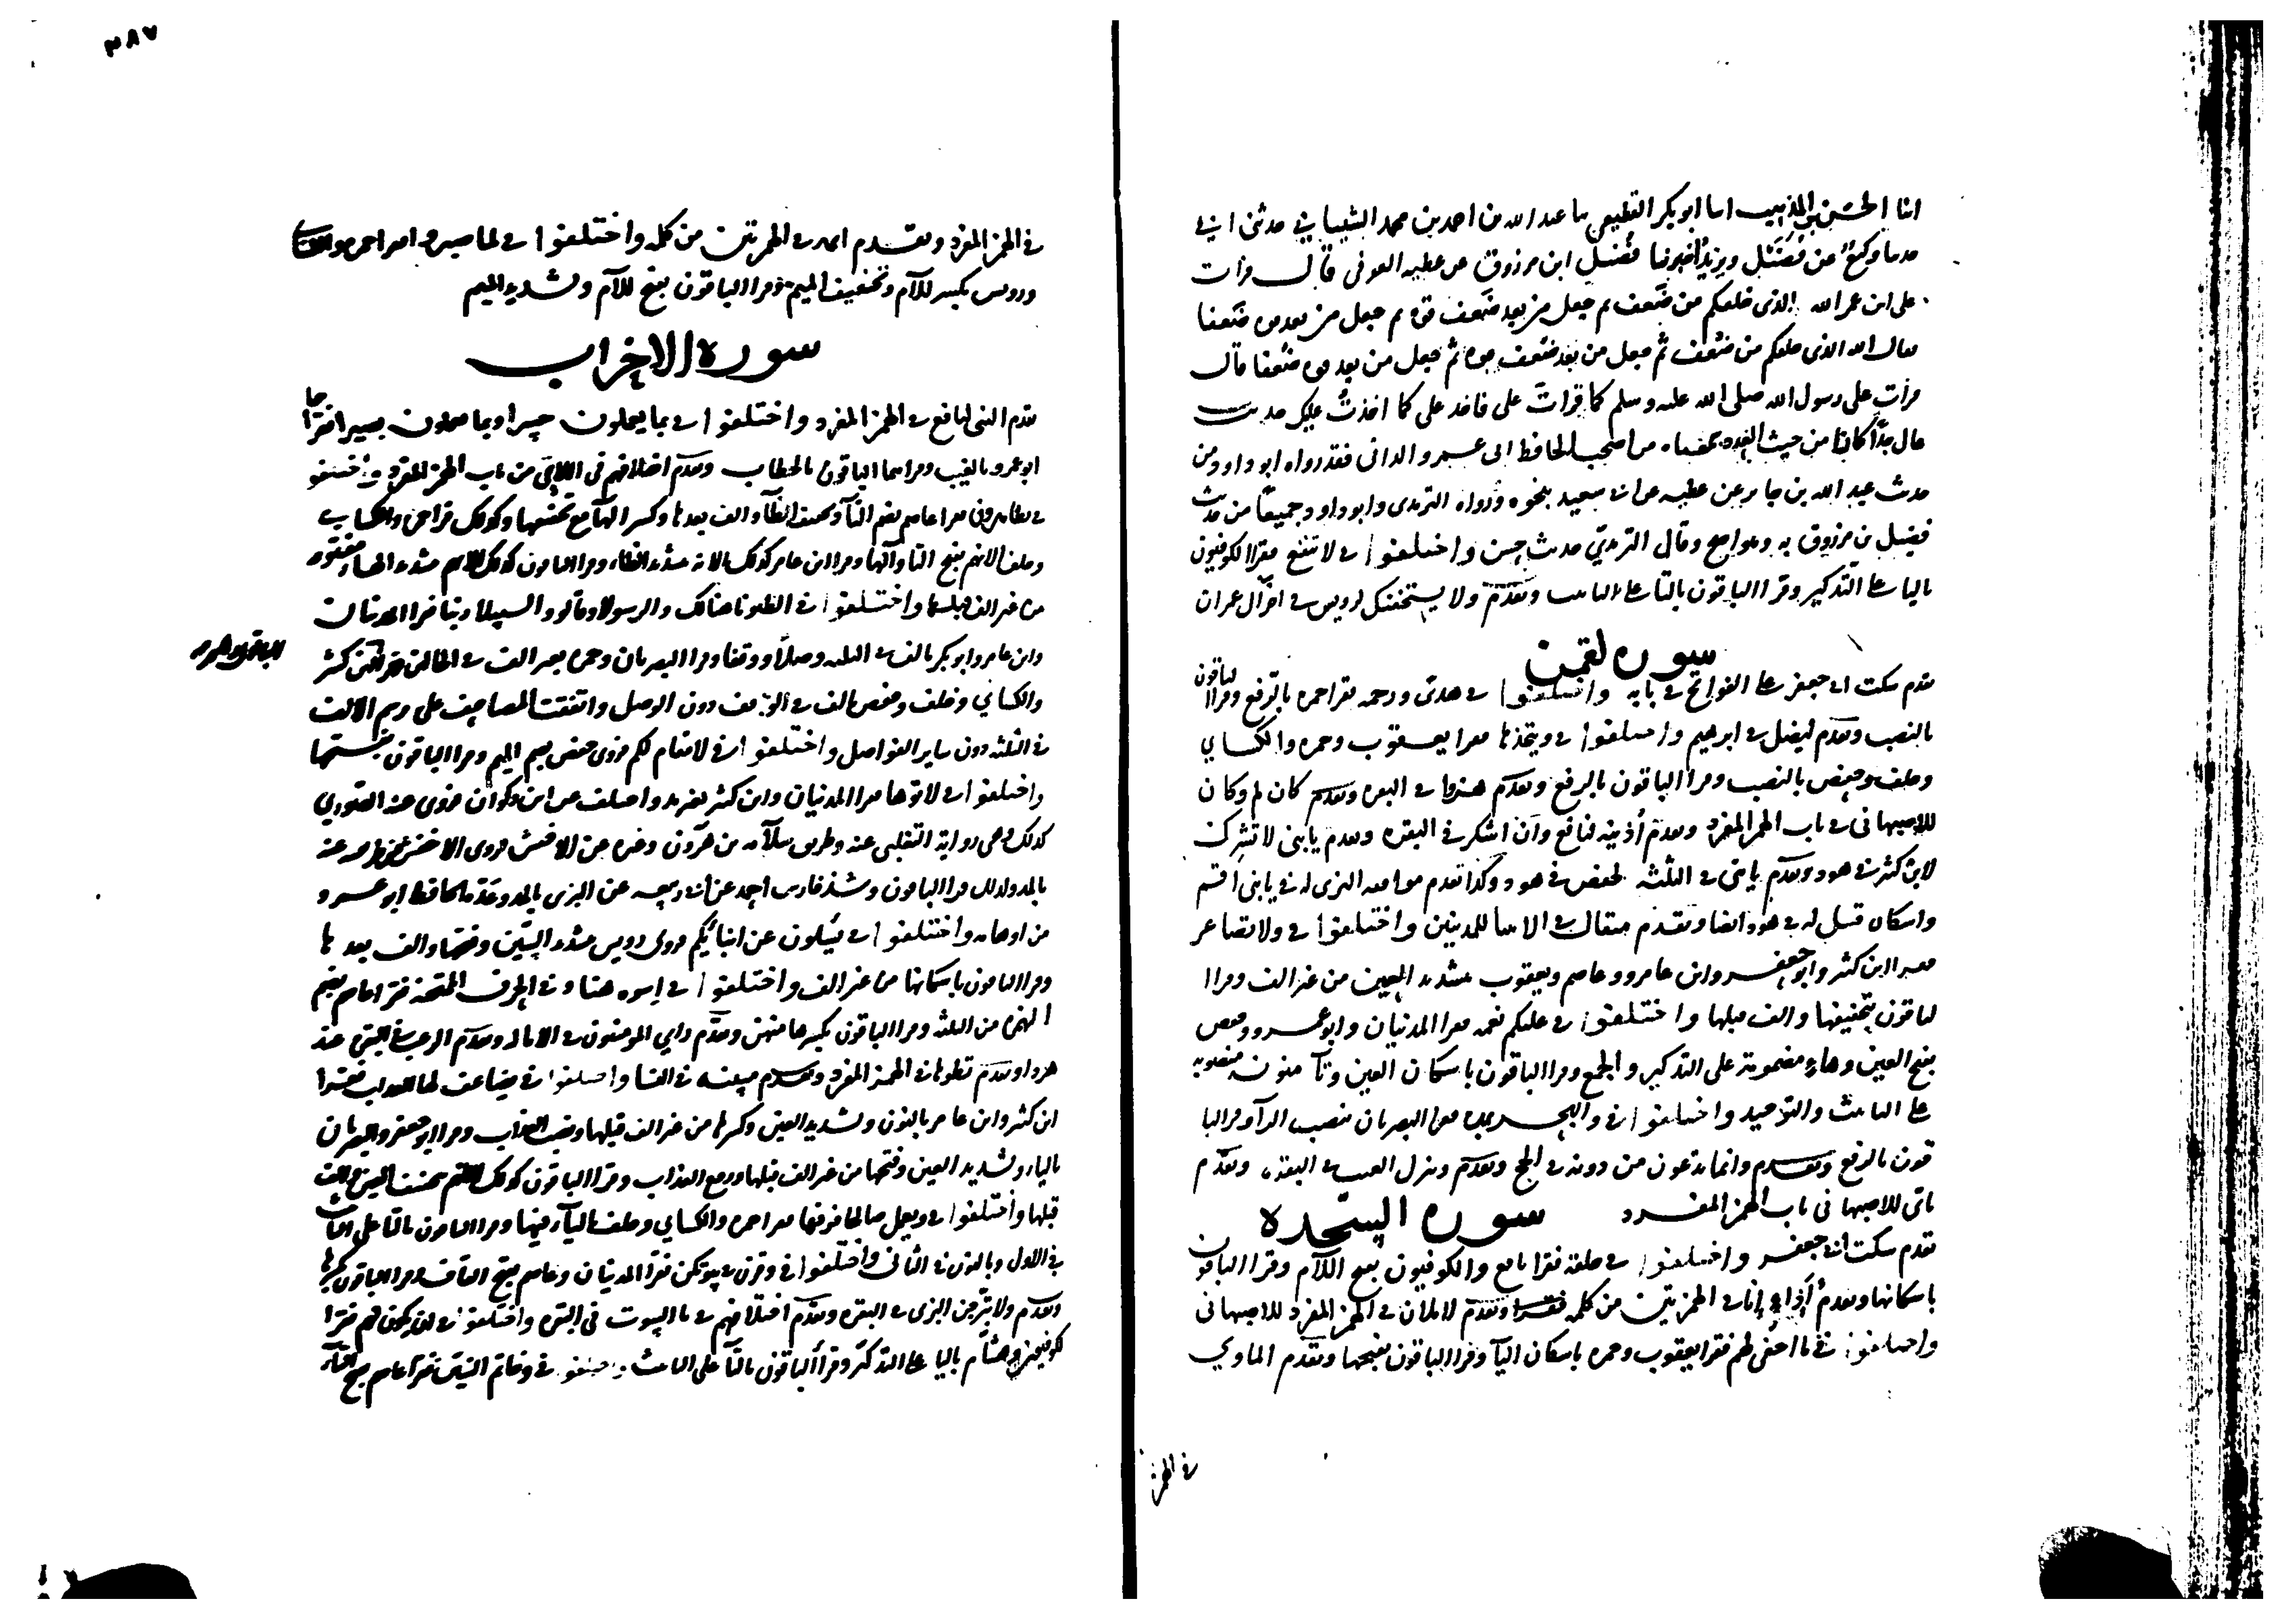 انا الحسن بن المذهب انا ابو بكر القطيعي نا عبد الله بن احمد بن محمد الشيباني حدثني ابي
حدثنا وكيع عن فُضَيْل ويزيد اخبرنا فضيل ابن مرزوق عن عطيه العوفي قال قرات
على ابن عمر الله الذي خلقكم من ضَعف ثم جعل من بعد ضَعف قوه ثم جعل من بعد قوه ضَعفا
فقال الله الذي خلقكم من ضُعف ثم جعل من بعد ضُعف قوه ثم جعل من بعد قوه ضُعفا قال
قرات على رسول الله صلى الله عليه وسلم كما قرات على فاخذ على كما اخذت عليك حديث
عال جدًّا كانا من حيث العدد سمعناه من اصحاب الحافظ ابي عمرو الداني فقد رواه ابو داود من
حديث عبد الله بن جابر عن عطيه عن ابي سعيد بنحوه ورواه الترمذي وابو داود جميعًا من حديث
فضيل بن مرزوق به وهو اصح وقال الترمذي حديث حسن واختلفوا في لا تنفع فقرا الكوفيون
باليا على التذكير وقرا الباقون بالتا على التانيث وتقدم ولا يستخفنك لرويس في اخر آل عمران
سوره لقمن
تقدم سكت ابي جعفر على الفواتح في بابه واختلفوا في هدى ورحمه فقرا حمزه بالرفع وقرا الباقون
بالنصب وتقدم ليضل في ابرهيم واختلفوا في ويتخذها فقرا يعقوب وحمزه والكساي
وخلف وحفص بالنصب وقرا الباقون بالرفع وتقدم هزوا في البقره وتقدم كان لم وكان
للاصبهاني في باب الهمز المفرد وتقدم أذنيه لنافع وان اشكر في البقره وتقدم يابني لا تشرك
لابن كثير في هود وتقدم يابني في الثلثه لحفص في هود وكذا تقدم موافقه البزي له في يابني اقم
واسكان قنبل له في هود ايضا وتقدم مثقال في الانبيا للمدنيين واختلفوا في ولا تصاعر
فقرا ابن كثير وابو جعفر وابن عامر وعاصم ويعقوب بتشديد العين من غير الف وقرا ا
لباقون بتخفيفها والف قبلها واختلفوا في عليكم نعمه فقرا المدنيان وابو عمرو وحفص
بفتح العين وهاءٍ مضمومة على التذكير والجمع وقرا الباقون باسكان العين وتآ منونه منصوبه
على التانيث والتوحيد واختلفوا في والبحر يمده فقرا البصريان بنصب الرآ وقرا البا
قون بالرفع وتقدم وانما يدعون من دونه في الحج وتقدم وينزل الغيث في البقره وتقدم
باي للاصبهاني في باب الهمز المفرد
سوره السجده
تقدم سكت ابي جعفر واختلفوا في خلقه فقرا نافع والكوفيون بفتح اللام وقرا الباقون
باسكانها وتقدم أإذا إنا في الهمزتين من كلمه وتقدم لاملان في الهمز المفرد للاصبهاني
واختلفوا في ما اخفي لهم فقرا يعقوب وحمزه باسكان اليآ وقرا الباقون بفتحها وتقدم الماوي
في الهمز
٣٨٧
في الهمز المفرد وتقدم ايمه في الهمزتين من كلمه واختلفوا في لما صبروا فقرا حمزه والكساي
ورويس بكسر اللام وتخفيف الميم وقرا الباقون بفتح اللام وتشديد الميم
سوره الاحزاب
تقدم النبي لنافع في الهمز المفرد واختلفوا في بما يعملون خبيرا وبما يعملون بصيرا فقراهما
ابو عمرو بالغيب وقراهما الباقون بالخطاب وتقدم اختلافهم في اللائي من باب الهمز المفرد واختلفوا
في تظاهرون فقرا عاصم بضم التآ وتخفيف الظآ والف بعدها وكسر الهآ مع تخفيفها وكذلك قرا حمزه والكساي
وخلف الا انهم بفتح التا والها وقرا ابن عامر كذلك الا انه بتشديد الظاء وقرا الباقون كذلك الا انهم بتشديد الهاء مفتوحه
من غير الف قبلها واختلفوا في الظنونا هنالك والرسولا وقالوا والسبيلا ربنا فقرا المدنيان
وابن عامر وابو بكر بالف في الثلثه وصلًا ووقفا وقرا البصريان وحمزه بغير الف في الحالين وقرا ابن كثير
والكساي وخلف وحفص بالف في الوقف دون الوصل واتفقت المصاحف على رسم الالف
في الثلثه دون ساير الفواصل واختلفوا في لا مقام لكم فروى حفص بضم الميم وقرا الباقون بفتحها
واختلفوا في لاتوها فقرا المدنيان وابن كثير بغير مد واختلف عن ابن ذكوان فروى عنه الصوري
كذلك وهي رواية التغلبي عنه وطريق سلامه بن هرون وغيره عن الاخفش وروى الاخفش من طريقيه عنه
بالمد وكذلك قرا الباقون وشذ فارس احمد عن ابي ربيعه عن البزي بالمد وعده الحافظ ابو عمرو
من اوهامه واختلفوا في يسالون عن انبائكم فروى رويس بتشديد السين وفتحها والف بعدها
وقرا الباقون باسكانها من غير الف واختلفوا في اسوه هنا وفي حرفي الممتحنه فقرا عاصم بضم
الهمزه من الثلثه وقرا الباقون بكسرها فيهن وتقدم راي المومنون في الاماله وتقدم الرعب في البقره عند
هزوا وتقدم تطوها في الهمز المفرد وتقدم مبينه في النسا واختلفوا في يضاعف لها العذاب فقرا
ابن كثير وابن عامر بالنون وتشديد العين وكسرها من غير الف قبلها ونصب العذاب وقرا ابو جعفر والبصريان
بالياء وتشديد العين وفتحها من غير الف قبلها ورفع العذاب وقرا الباقون كذلك الا انهم بتخفيف العين والف
قبلها واختلفوا في ويعمل صالحا نوتها فقرا حمزه والكساي وخلف باليآ فيهما وقرا الباقون بالتا على التانيث
في الاول وبالنون في الثاني واختلفوا في وقرن في بيوتكن فقرا المدنيان وعاصم بفتح القاف وقرا الباقون بكسرها
وتقدم ولا تبرجن البزي في البقره وتقدم اختلافهم في با البيوت في البقره واختلفوا في ان يكون لهم فقرا
لكوفيون وهشام باليا على التذكير وقرا الباقون بالتآ على التانيث واختلفوا في وخاتم النبيين فقرا عاصم بفتح التآ